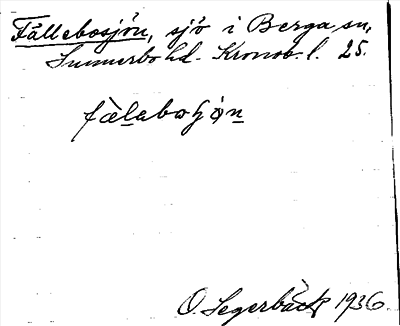 Fällebosjön, sjö i Berga sn,
Sunnerbo hd. Kronob. l. 25.
fä̀labosjön
O. Segerbäck 1936